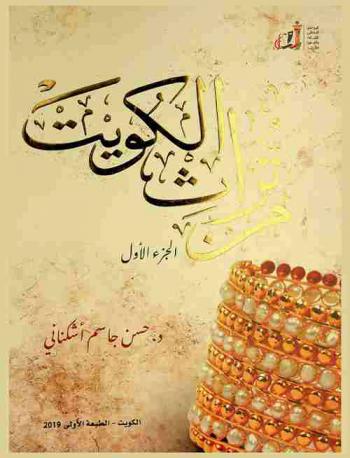 من تراث الكويت
الجزء الأول
د. حسن جاسم أشكناني
الكويت - الطبعة الأولى 2019